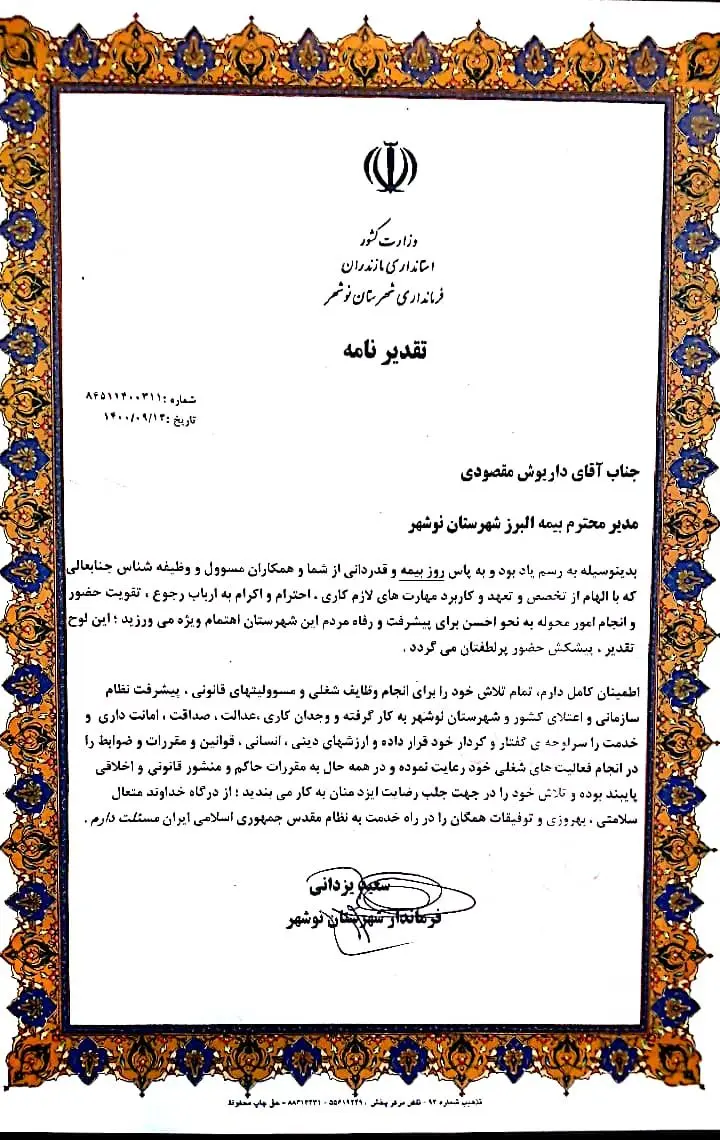 وزارت کشور
استانداری مازندران
فرمانداری شهرستان نوشهر
تقدیر نامه
شماره :۸۶۵۱۱۴۰۰۳۱۱
تاریخ :۱۴۰۰/۰۹/۱۳
جناب آقای داریوش مقصودی
مدیر محترم بیمه البرز شهرستان نوشهر
بدینوسیله به رسم یاد بود و به پاس روز بیمه و قدردانی از شما و همکاران مسوول و وظیفه شناس جنابعالی
که با الهام از تخصص و تعهد و کاربرد مهارت های لازم کاری ، احترام و اکرام به ارباب رجوع ، تقویت حضور
و انجام امور محوله به نحو احسن برای پیشرفت و رفاه مردم این شهرستان اهتمام ویژه می ورزید ؛ این لوح
تقدیر ، پیشکش حضور پرلطفتان می گردد .
اطمینان کامل دارم، تمام تلاش خود را برای انجام وظایف شغلی و مسوولیتهای قانونی ، پیشرفت نظام
سازمانی و اعتلای کشور و شهرستان نوشهر به کار گرفته و وجدان کاری ،عدالت ، صداقت ، امانت داری و
خدمت را سرلوحه ی گفتار و کردار خود قرار داده و ارزشهای دینی ، انسانی ، قوانین و مقررات و ضوابط را
در انجام فعالیت های شغلی خود رعایت نموده و در همه حال به مقررات حاکم و منشور قانونی و اخلاقی
پایبند بوده و تلاش خود را در جهت جلب رضایت ایزد منان به کار می بندید ؛ از درگاه خداوند متعال
سلامتی ، بهروزی و توفیقات همگان را در راه خدمت به نظام مقدس جمهوری اسلامی ایران مسئلت دارم .
سعید یزدانی
فرماندار شهرستان نوشهر
تذهیب شماره ۹۲ - تلفن مرکز پخش : ۵۵۶۱۹۲۲۹ - ۸۸۳۱۳۲۳۱ - حق چاپ محفوظ